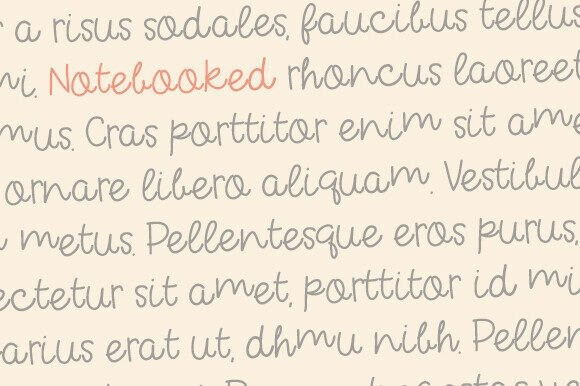 a risus sodales, faucibus tellus
mi. Notebooked rhoncus laoreet
mus. Cras porttitor enim sit ame
ornare libero aliquam. Vestibul
metus. Pellentesque eros purus,
ectetur sit amet, porttitor id mi
arius erat ut, dhmu nibh. Pellen